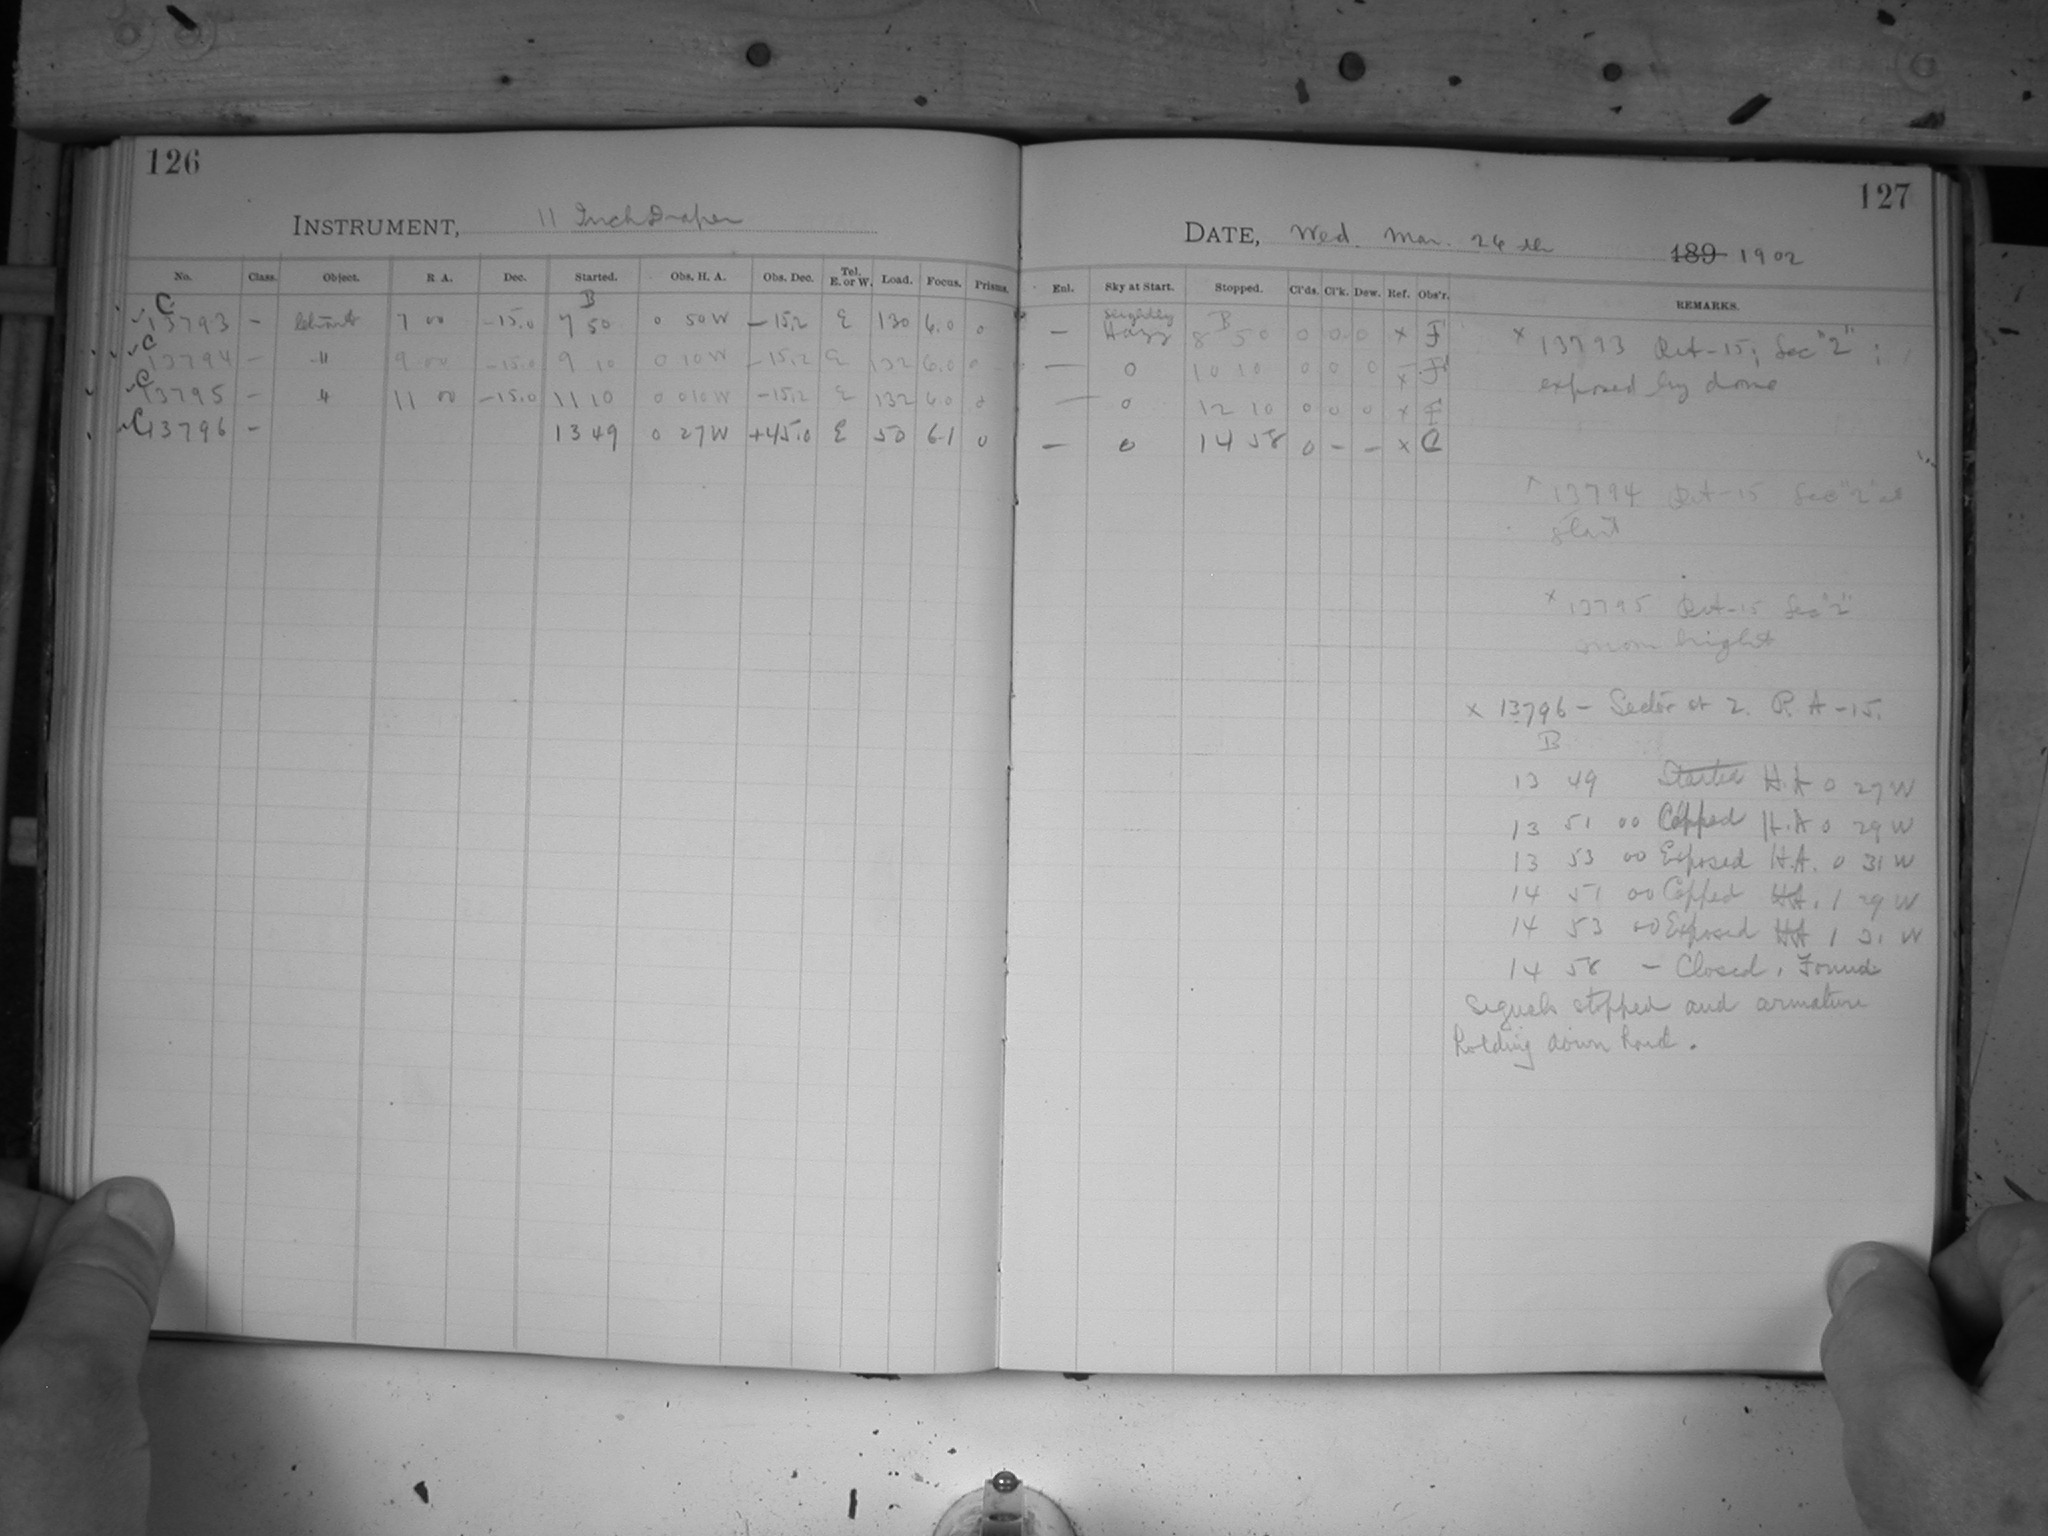 126
127
INSTRUMENT, 11 Inch Draper
DATE, Wed. Mar. 26th 189 1902
No. Class. Object. R A. Dec. Started. Obs. H. A. Obs. Dec. Tel. E. or W. Load. Focus. Prisms. Enl. Sky at Start. Stopped. Cl'ds. Cl'k. Dew. Ref. Obs'r. REMARKS.
C 13793 – 7 00 –15.0 B 7 50 0 50 W –15.2 E 130 6.0 0 — Slightly Hazy B 8 50 0 0 0 x F
C 13794 – " 9 00 –15.0 9 10 0 10 W –15.2 E 132 6.0 0 — 0 10 10 0 0 0 x F
C 13795 – " 11 00 –15.0 11 10 0 010 W –15.2 E 132 6.0 0 — 0 12 10 0 0 0 x F
C 13796 – 13 49 0 27 W +45.0 E 50 6.1 0 — 0 14 58 0 – – x C
x 13793 R.A –15; Sec "2";
exposed by dome
x 13794 R.A –15 Sec "2" at
start
x 13795 R.A –15 Sec "2"
moon bright
x 13796 – Sector at 2. R. A –15.
B
13 49 Started H.A 0 27 W
13 51 00 Capped H.A 0 29 W
13 53 00 Exposed H.A. 0 31 W
14 51 00 Capped H.A. 1 29 W
14 53 00 Exposed HA 1 31 W
14 58 – Closed. Found
signals stopped and armature
holding down hard.